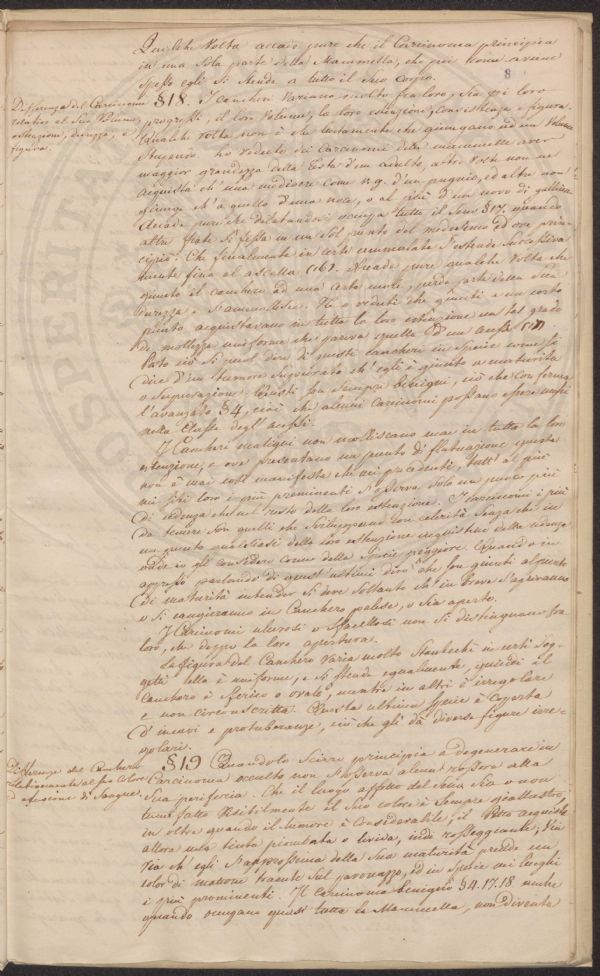 Qualche Volta accade pure che il Carcinoma principia
in una sola parte della Mammella, che poi come avviene
spesso egli si stende a tutto il suo Corpo.
8
Differenza del Carcinoma
relativa al suo Volume,
estensione, durezza, e
figura.
§18. I cancheri Variano molto fra loro, Sia pei loro
progressi, il lor Volume, la loro estenzione, consistenza e figura.
Qualche volta non è che lentamente che giungano ad un Volume
Stupendo. ho veduto dei Carcinomi delle mammelle aver
maggior grandezza della Testa d'un adulto, altre Volte non ne
acquista ch'una mediocre come v.g. d'un pugno, ed altre non
giunge ch'a quello d'una noce, o al più d'un uovo di gallina.
Accade pure che dilatandosi occupa tutto il Seno §17. quando
altre fiate si fissa in un sol punto del medesimo ed ove prin-
cipiò. Che finalmente in certe ammalate s'estende successiva
mente fino al ascella (16). Accade pure qualche Volta che
giunto il canchero ad una certa mole, perde parte della sua
durezza e s'ammollisce. Ne ò veduti che giunti a un certo
punto acquistavano in tutta la loro estenzione un tal grado
di mollezza uniforme che pareva quella d'un
Posto ciò si puol dire di questi cancheri in specie come si
dice d'un tumore suppurato ch'egli è giunto a maturità
o supurazione. Questi fra sempre benigni, ciò che conferma
l'avanzato §4, cioè che alcuni Carcinomi possano essere messi
nella Classe degl'
I Cancheri maligni non molliscano mai in tutta la loro
estenzione, e ove presentano un punto di flutuazione questa
non è mai così manifesta che nei precedenti, tutt'al più
nei siti loro i più prominenti si osserva solo un poco più
di cedenza che nel resto della loro estenzione. I carcinomi i più
da temere son quelli che sviluppano con celerità senza che in
un punto qualsiasi della loro estenzione acquistino della cedenza
onde io gli considero come della specie peggiore. Quando io in
appresso parlando di quest'ultimi dirò che son giunti al punto
di maturità intender si deve soltanto ch'in breve s'apriranno
o si cangieranno in Canchero palese, o Sia aperto.
I Carcinomi ulcerosi o Sfacellosi non si distinguano fra
loro, che doppo la loro apertura.
La figura del Canchero Varia molto Stantechè in certi Sog-
getti ella è uniforme, e si stende egualmente, quindi il
Canchero è sferico o ovale, mentre in altri è irregolare
e non circonscritta. Questa ultima Specie è Coperta
d'incavi e protuberanze, ciò che gli dà diverse figure irre-
golari.
Differenza del Canchero
relativamente al suo Colore
ed efusione di Sangue.
§19 Quando lo Scirro principia a degenerare in
Carcinoma occulto non s'osserva alcun rossore alla
Sua periferia. Che il luogo affetto del Seno Sia o non
tumefatto Visibilmente il Suo colore è Sempre giallastro,
in oltre quando il tumore è Considerabile, il Petto acquista
allora una tinta piombata o livida, indi rosseggiante, Fin
via ch'egli s'approssima della Sua maturità prende un
color di mattone traente sul pavonazzo, ed in specie nei luoghi
i più prominenti. Il Carcinoma benigno §4. 17. 18. anche
quando occupano quasi tutta la Mammella, non diventa